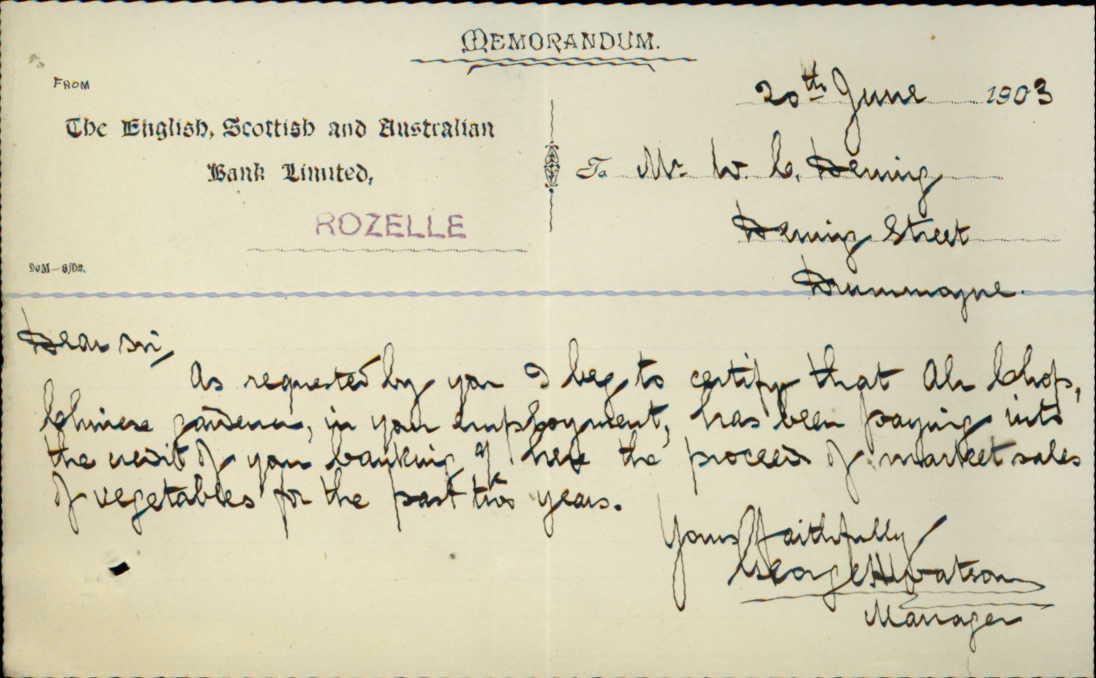 MEMORANDUM.
FROM
The English, Scottish and Australian
Bank Limited,
ROZELLE
20th June 1903
To Mr W. C. Dening
Dening Street
Drummoyne.
Dear Sir,
As requested by you I beg to certify that Ah Chop,
Chinese gardener, in your employment, has been paying into
the credit of your banking a/c here the proceeds of market sales
of vegetables for the past two years.
Yours faithfully
George H Watson
Manager